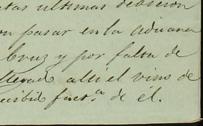 stas ultimas debieron
on pasar en la aduana
Cruz y por falta de
alli el vino de
ecibió fact.ª de él.